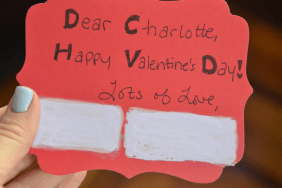 Dear Charlotte,
Happy Valentine's Day!
Lots of Love,